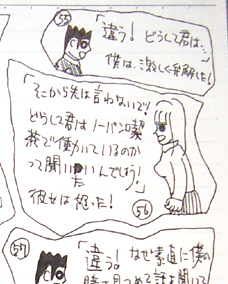 55
「違う!どうして君は…」
僕は、激しく弁解した!
「そこから先は言わないで!
どうして君はノーパン喫
茶で働いているのか
って聞いたいんでしょう!」
彼女は怒った!
56
57
「違う!なぜ素直に僕の
時を見つめて話を聞いて